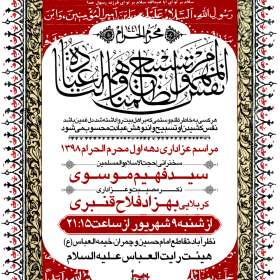 محرم الحرام ١٤٤١
نفس المهموم لظلمنا تسبیح و همه لنا عبادة
هر کسی به خاطر ظلم و ستمی که بر اهل بیت روا داشته شد دل غمین باشد
نفس کشیدن او تسبیح و اندوهش عبادت محسوب می‌شود
مراسم عزاداری دهه اول محرم الحرام ۱۳۹۸
سخنرانی: حجت الاسلام و المسلمین
سید فهیم موسوی
ذکر مصیبت و عزاداری
کربلایی بهزاد فلاح قنبری
از شنبه ۹ شهریور از ساعت ۲۱:۱۵
نظرآباد، تقاطع امام حسین و چمران، خیمه العباس (ع)
هیئت رایت العباس علیه السلام